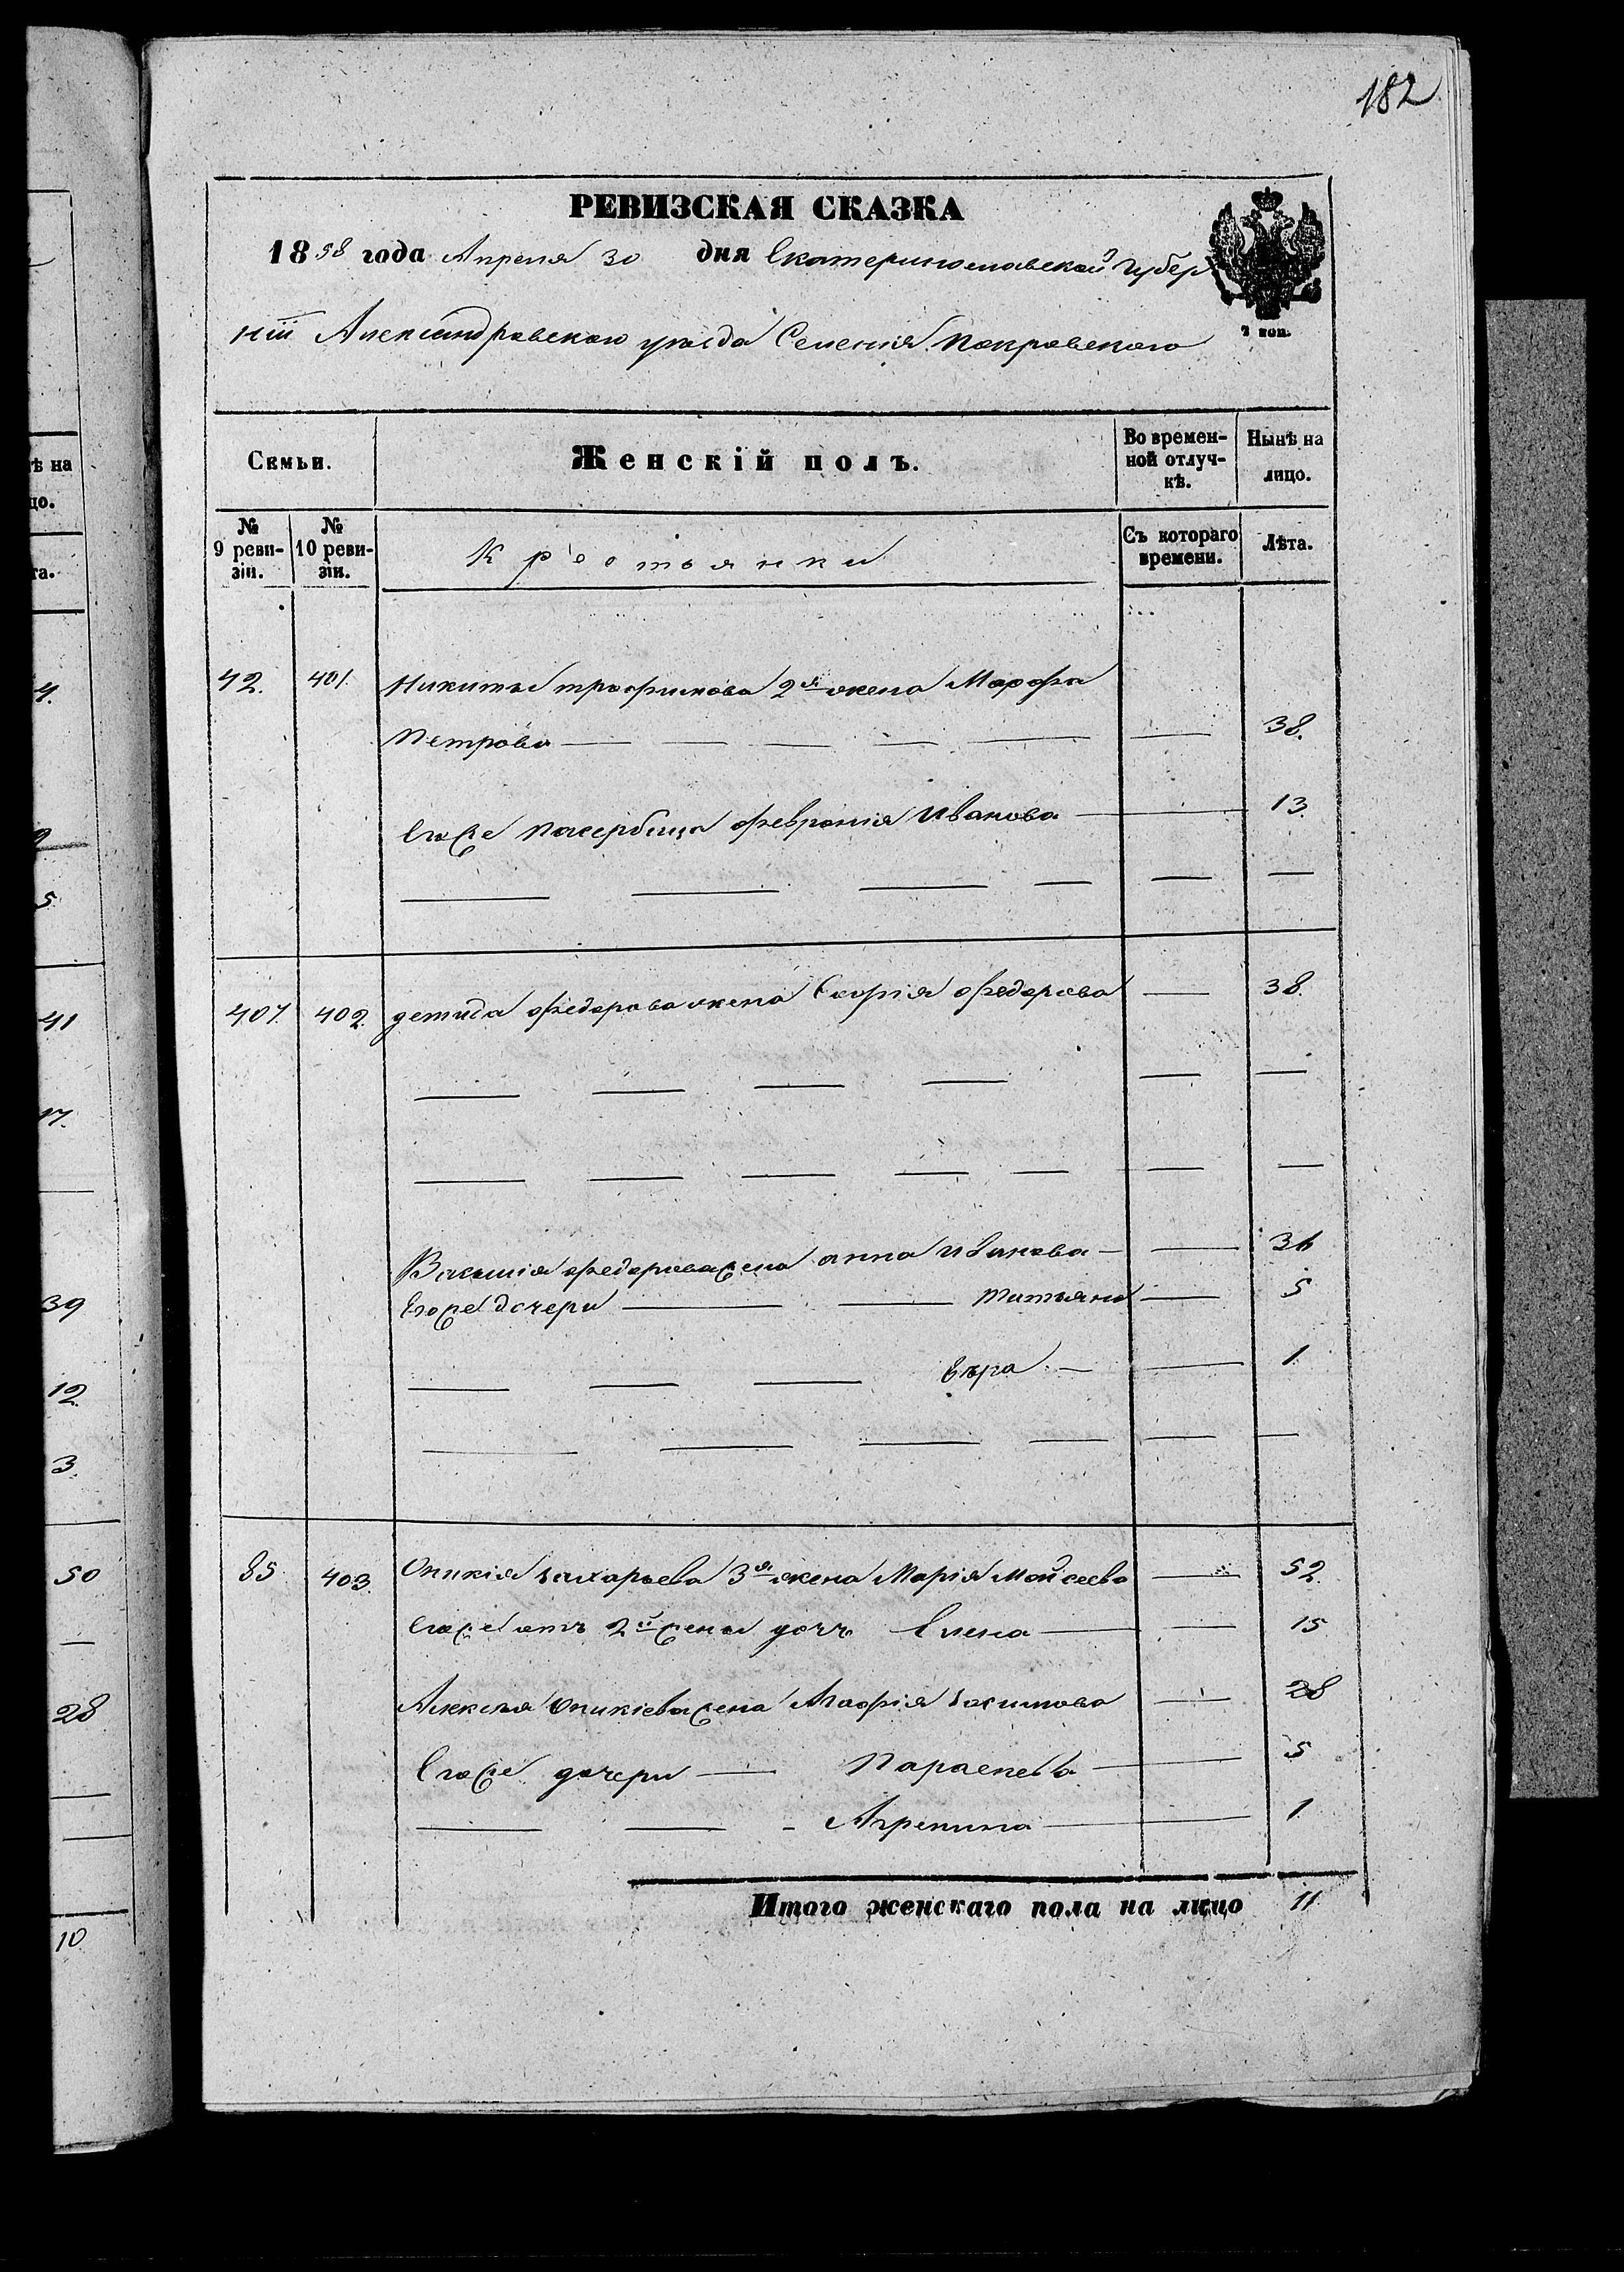 182
РЕВИЗСКАЯ СКАЗКА
1858 года Апреля 30 дня Екатеринославской Губер
ніи Александровского уѣзда Селенія Покровского
7 коп.
Семьи. Женскій полъ. Во времен-ной отлуч-кѣ. Нынѣ на лицо.
№ 9 реви-зіи. № 10 реви-зіи. Крестьянки Съ котораго времени. Лѣта.
42. 401. Никиты трофимова 2я жена Марфа
Петрова 38.
Егоже пасербица Февронія Иванова 13
407. 402. федорова жена Софія федорова 38.
Василія федорова жена анна Иванова 36
Егоже дочери татьяна 5
Вѣра 1
85 403. Оникія захарьева 3я жена Марія Мойсеева 52.
Егоже отъ 2й жены дочь Елена 15
Алексѣя Оникіева жена Агафія 28
Егоже дочери Параскева 5
Агрепина 1
Итого женскаго пола на лицо 11
ѣ на
цо.
та.
4.
5
41
17.
39
12.
3.
50
28
10